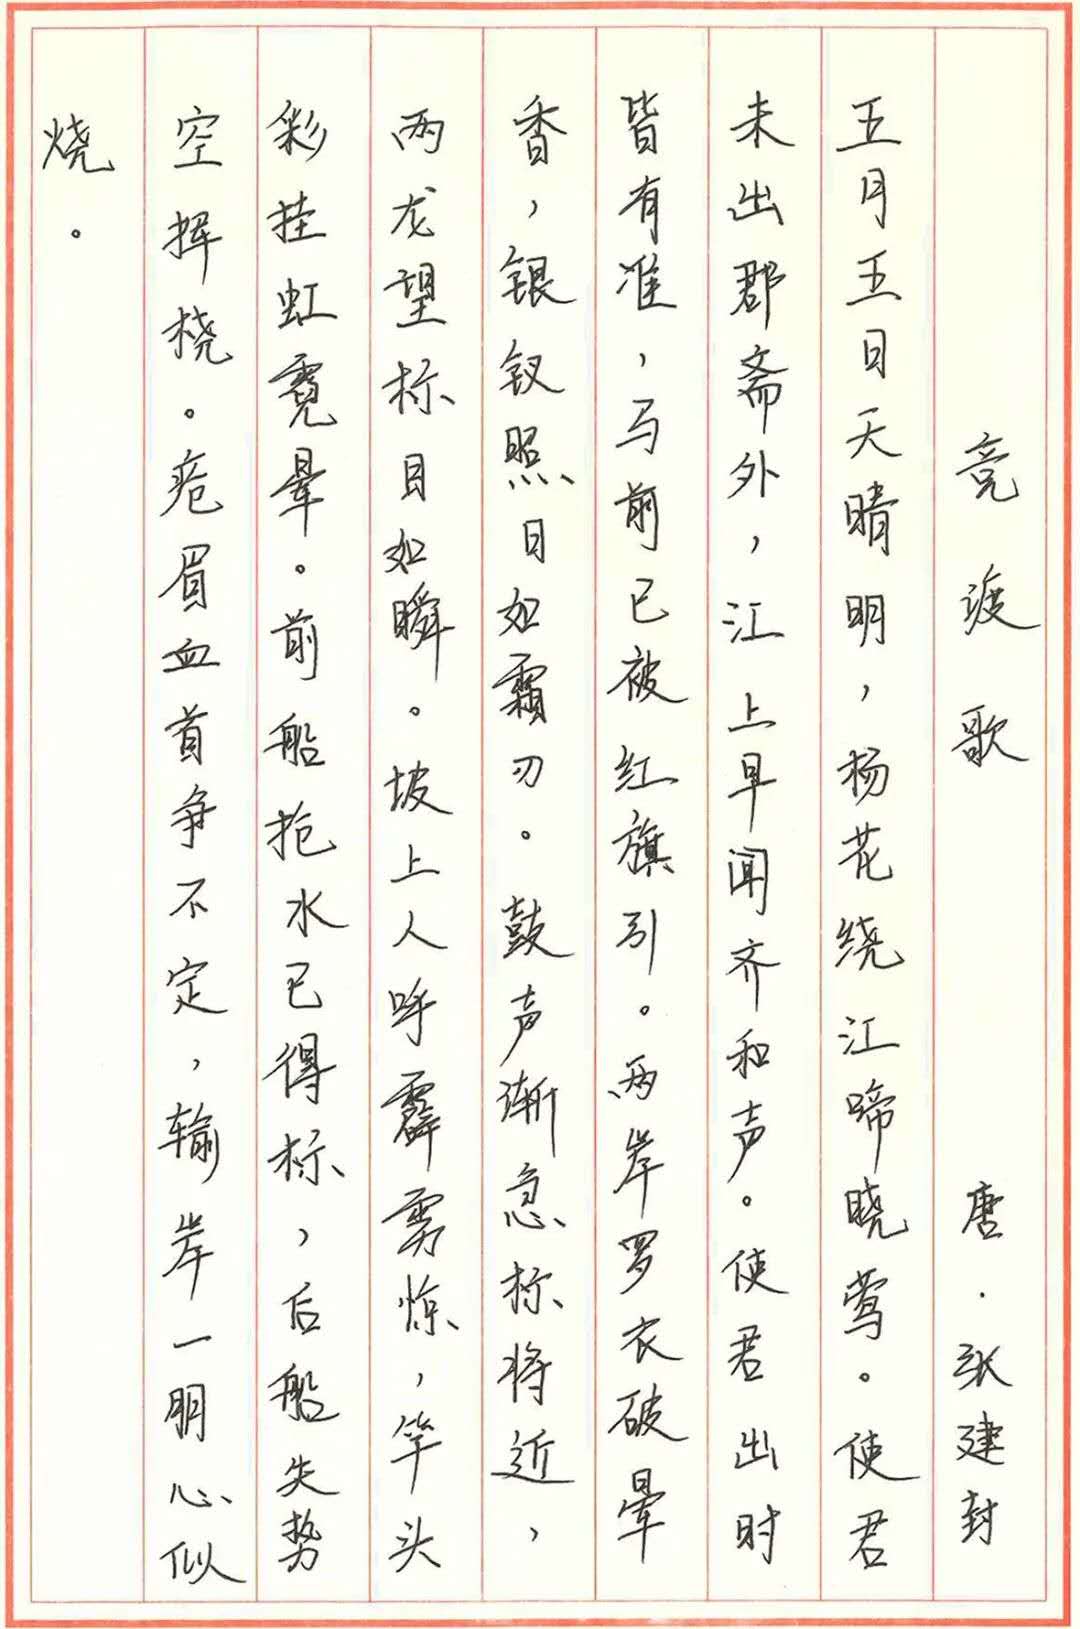 竞渡歌 唐·张建封
五月五日天晴明，杨花绕江啼晓莺。使君
未出郡斋外，江上早闻齐和声。使君出时
皆有准，马前已被红旗引。两岸罗衣破晕
香，银钗照日如霜刃。鼓声渐急标将近，
两龙望标目如瞬。坡上人呼霹雳惊，竿头
彩挂虹霓晕。前船抢水已得标，后船失势
空挥桡。疮眉血首争不定，输岸一朋心似
烧。